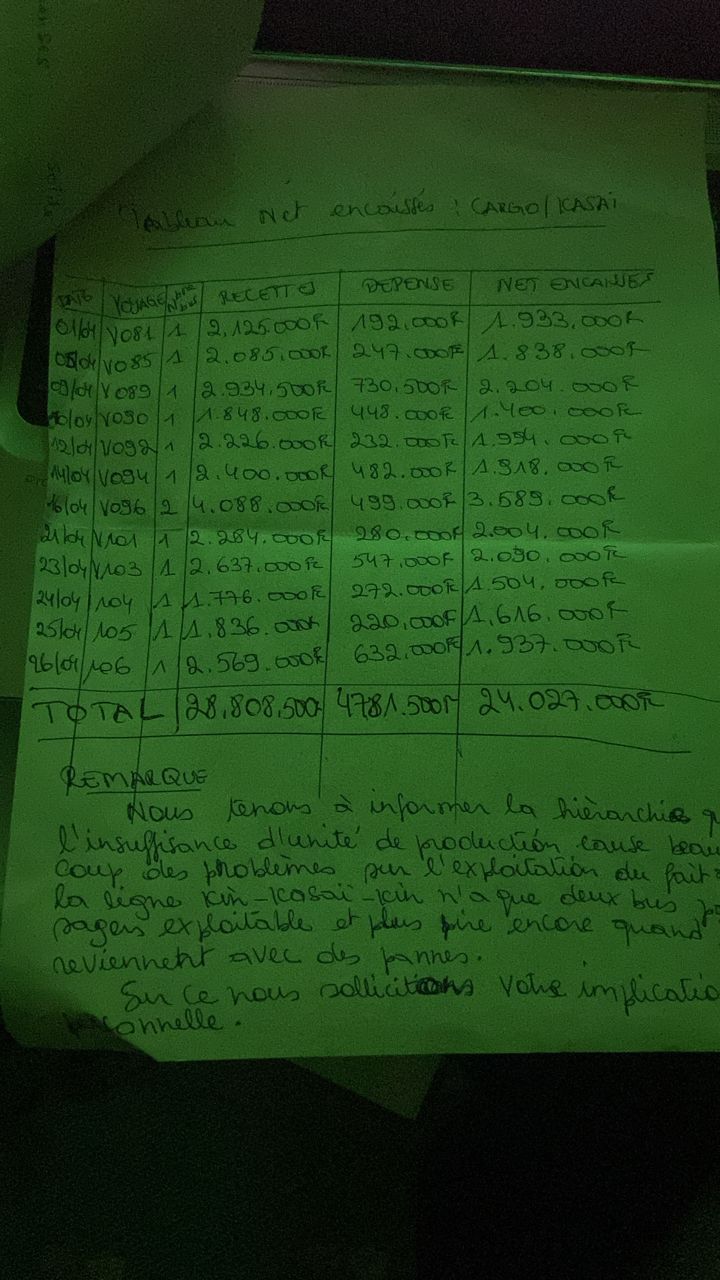 Tableau Net encaissés : CARGO/KASAI
DATE VOYAGE Nbre bus RECETTES DEPENSE NET ENCAISSES
01/04 V081 1 2.125.000F 192.000F 1.933.000F
05/04 V085 1 2.085.000F 247.000F 1.838.000F
09/04 V089 1 2.934.500F 730.500F 2.204.000F
10/04 V090 1 1.848.000F 448.000F 1.400.000F
12/04 V092 1 2.226.000F 232.000F 1.994.000F
14/04 V094 1 2.400.000F 482.000F 1.918.000F
16/04 V096 2 4.088.000F 499.000F 3.589.000F
21/04 V101 1 2.284.000F 280.000F 2.004.000F
23/04 V103 1 2.637.000F 547.000F 2.090.000F
24/04 104 1 1.776.000F 272.000F 1.504.000F
25/04 105 1 1.836.000F 220.000F 1.616.000F
26/04 106 1 2.569.000F 632.000F 1.937.000F
TOTAL 28.808.500F 4781.500F 24.027.000F
REMARQUE
Nous tenons à informer la hiérarchie q
l'insuffisance d'unité de production cause beau
coup des problèmes sur l'exploitation du fait
la ligne Kin-Kasaï-Kin n'a que deux bus p
sagers exploitable et plus pire encore quand
reviennent avec des pannes.
Sur ce nous sollicitons votre implicatio
sonnelle.